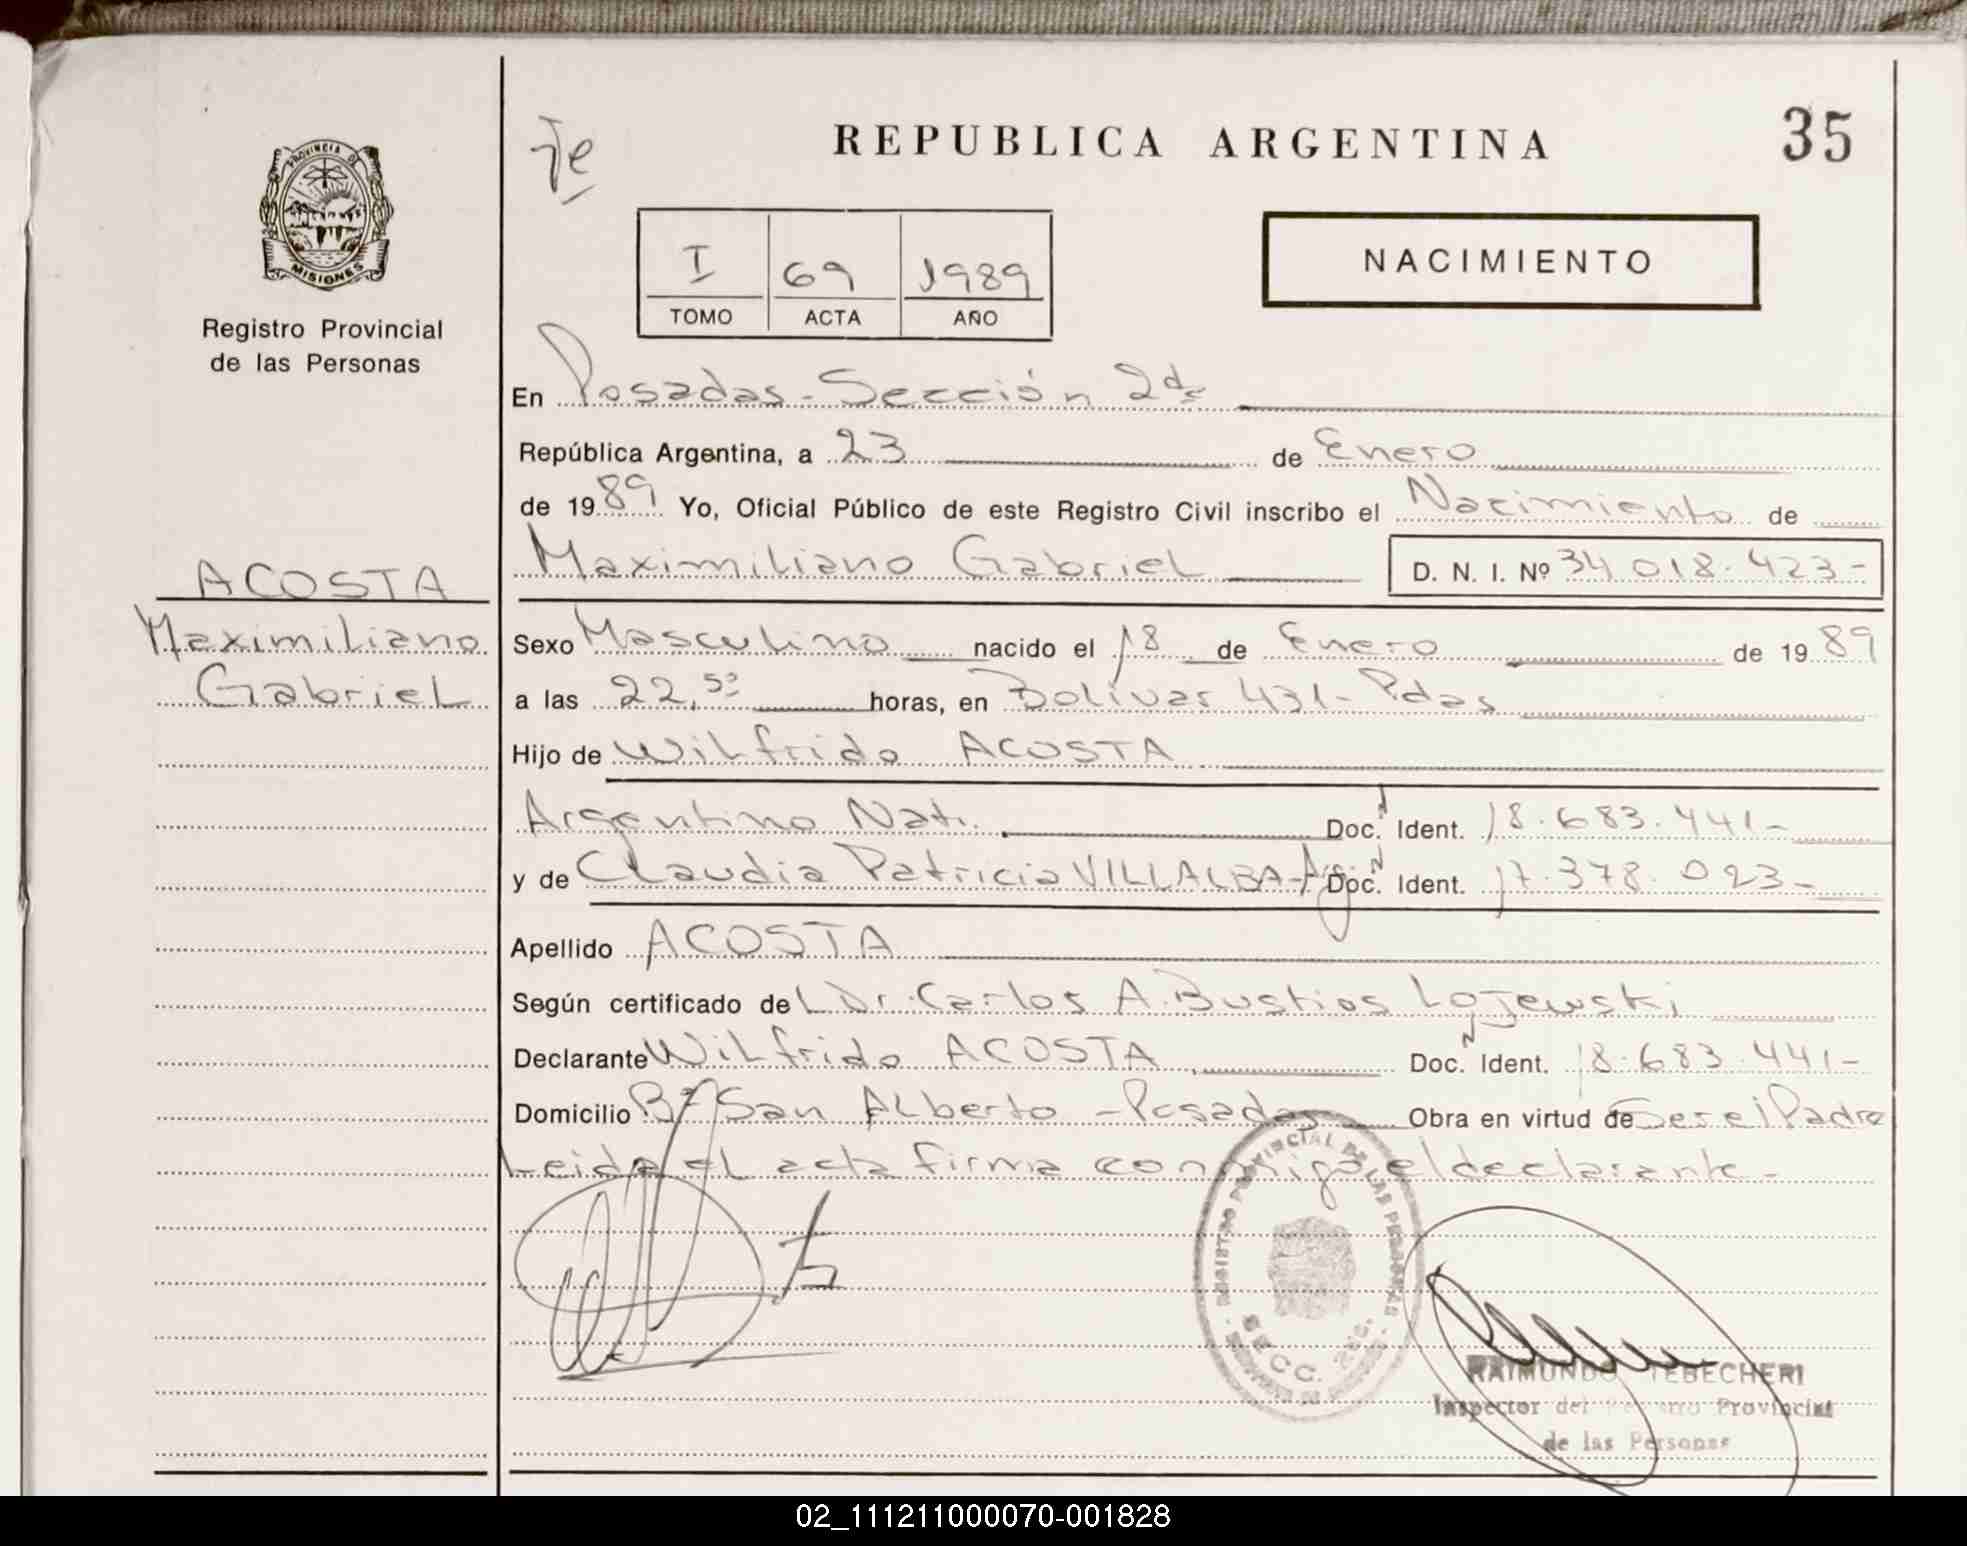 35
Je
REPUBLICA ARGENTINA
PROVINCIA DE
MISIONES
Registro Provincial
de las Personas
I 69 1989
TOMO ACTA AÑO
NACIMIENTO
En Posadas - Sección 2da
República Argentina, a 23 de Enero
de 1989 Yo, Oficial Público de este Registro Civil inscribo el Nacimiento de
Maximiliano Gabriel D. N. I. Nº 34.018.423-
ACOSTA
Maximiliano
Gabriel
Sexo Masculino nacido el 18 de Enero de 1989
a las 22,50 horas, en Bolivar 431 - Pdas
Hijo de Wilfrido ACOSTA
Argentino Nat. Doc. Ident. 18.683.441-
y de Claudia Patricia VILLALBA - Arg. Doc. Ident. 17.378.023-
Apellido ACOSTA
Según certificado del Dr. Carlos A. Bustios Lojewski
Declarante Wilfrido ACOSTA Doc. Ident. 18.683.441-
Domicilio Bº San Alberto - Posadas Obra en virtud de Ser el Padre
Leida el acta firma conmigo el declarante -
REGISTRO PROVINCIAL DE LAS PERSONAS
SECC. 2da.
RAIMUNDO TEBECHERI
Inspector del Registro Provincial
de las Personas
02_111211000070-001828